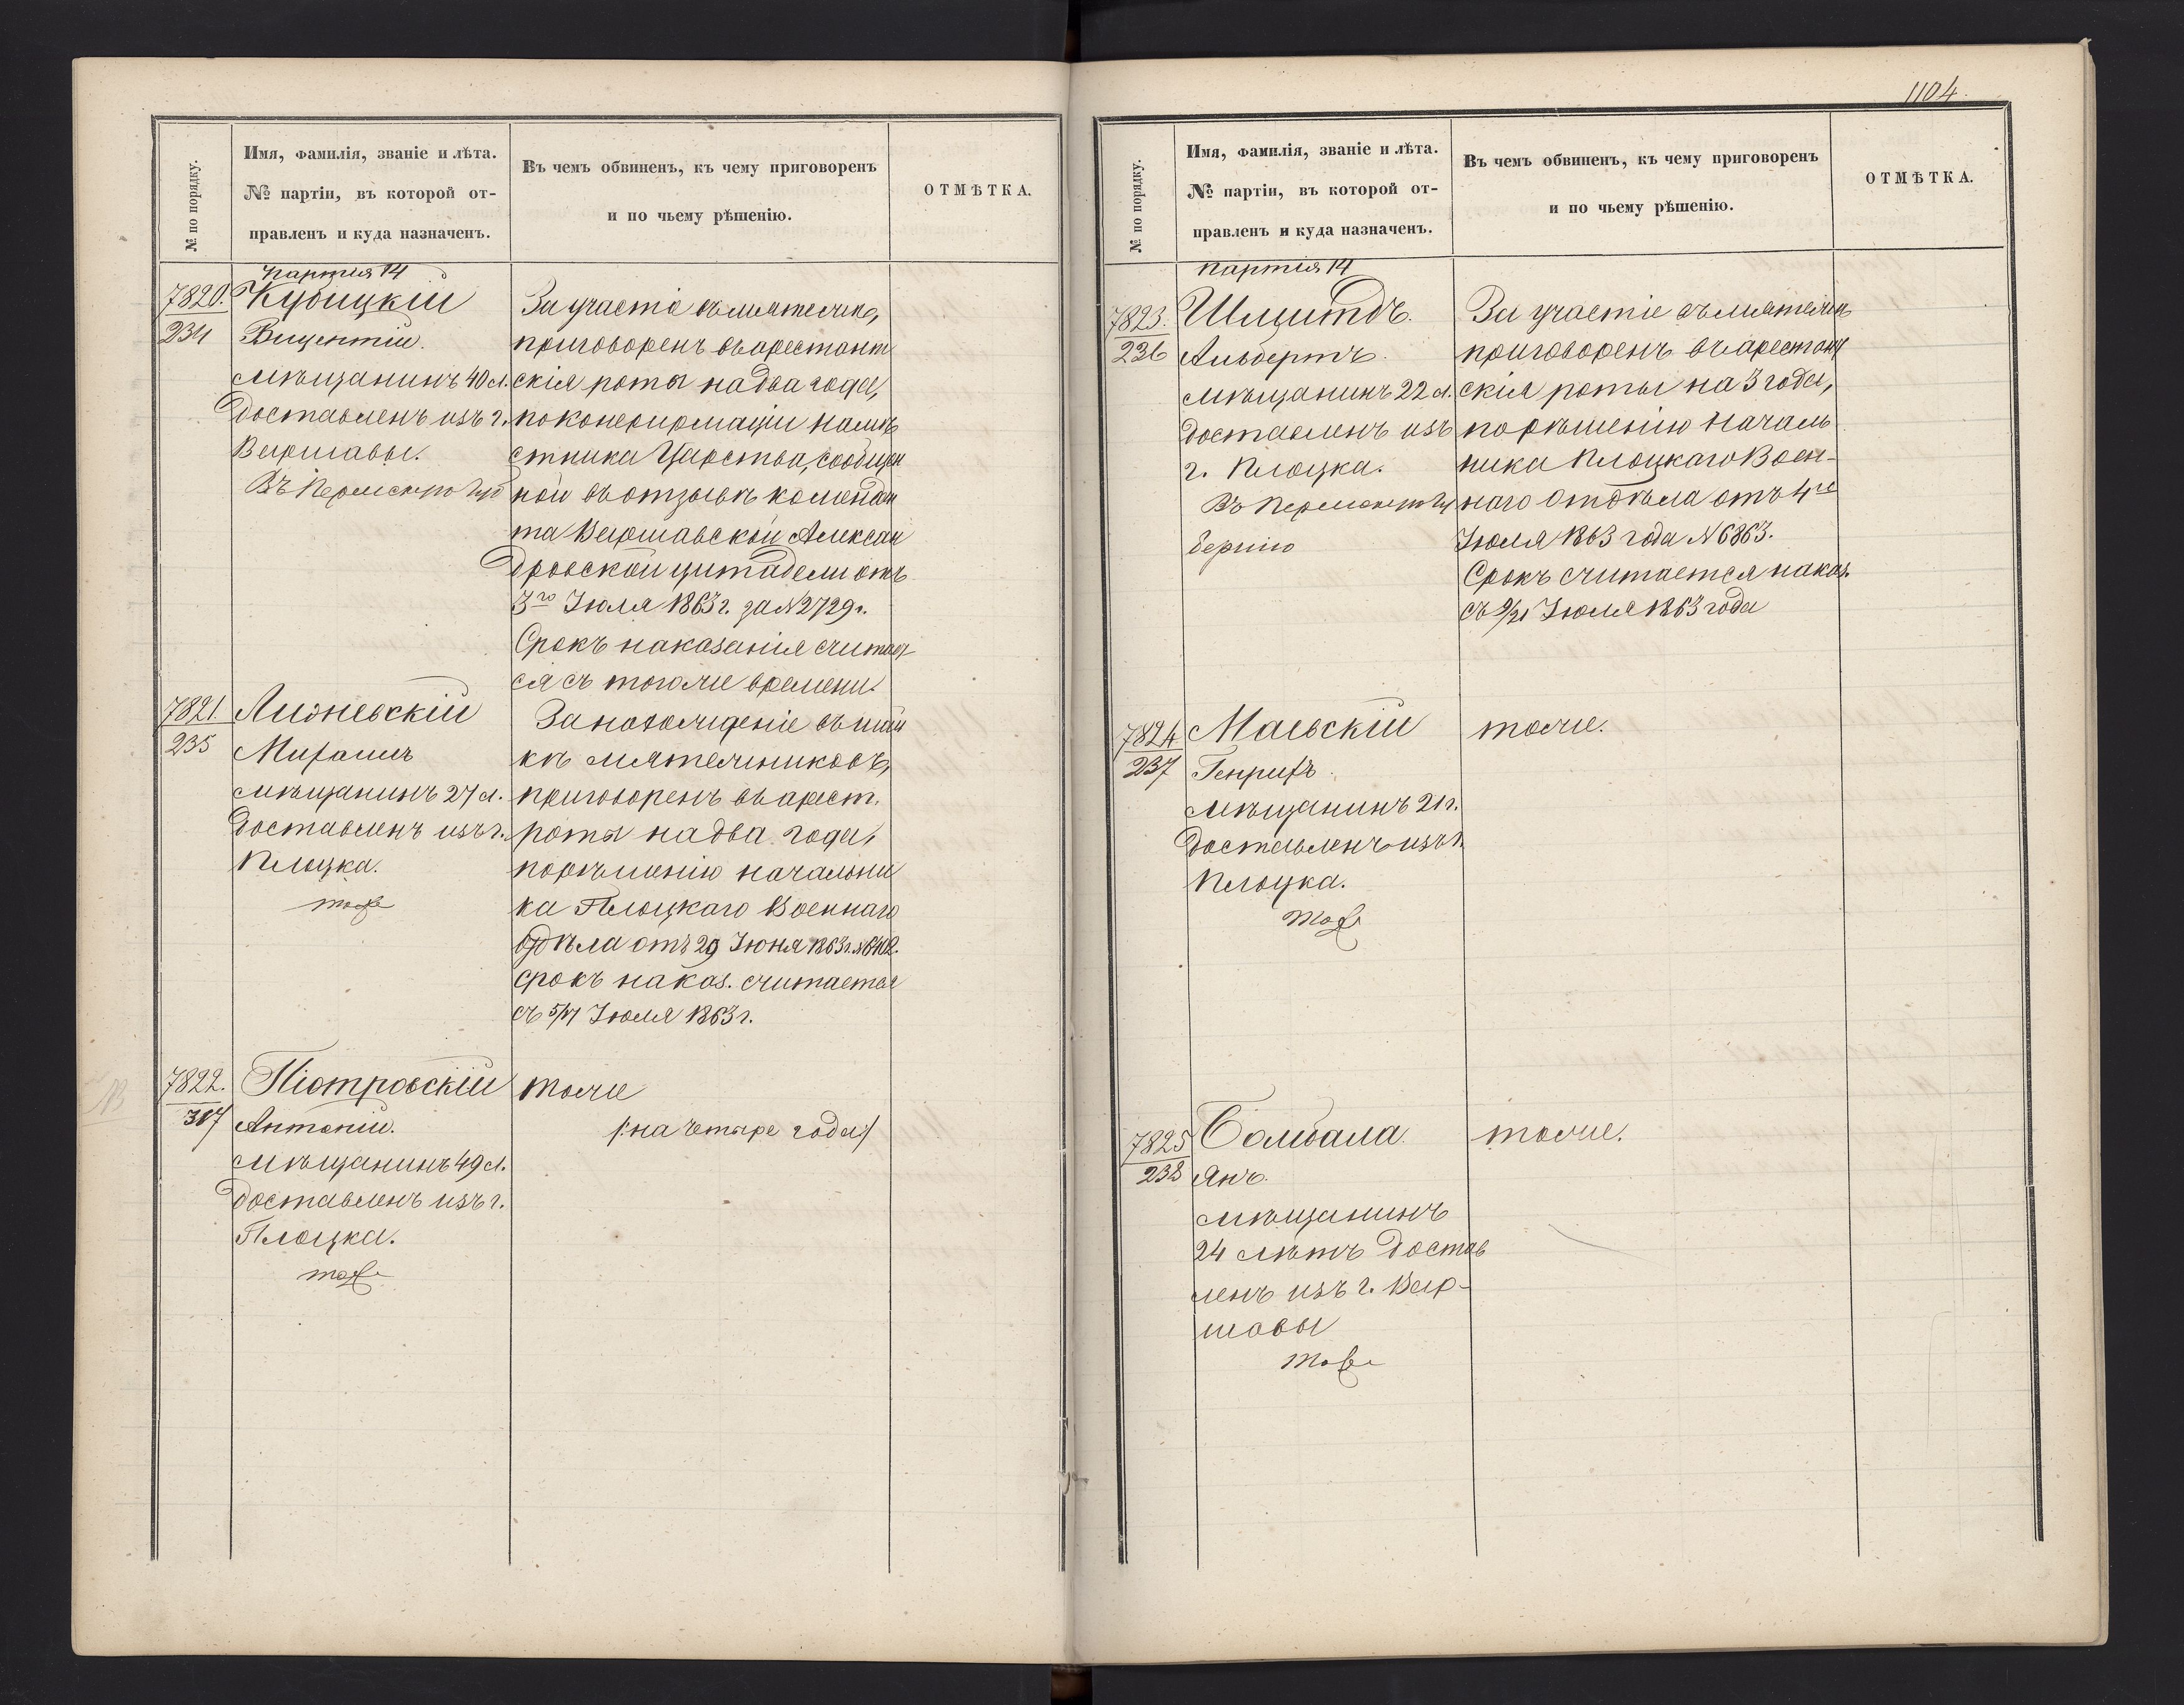 1104.
№ по порядку.
Имя, фамилія, званіе и лѣта.
№ партіи, въ которой от-
правленъ и куда назначенъ.
Въ чемъ обвиненъ, къ чему приговоренъ
и по чьему рѣшенію.
ОТМѢТКА.
Партія 14
7820.
234
Кубицкій
Вицентій.
мѣщанинъ 40 л.
доставленъ изъ г.
Варшавы.
Въ Пермскую Губ
За участіе въ мятежѣ,
приговоренъ въ арестант
скія роты на два года,
по конфирмаціи намѣ
стника Царства, сообщен
ной въ отзывѣ комендан
та Варшавской Алексан
дровской цитадели отъ
3го Іюля 1863 г. за № 2729.
Срокъ наказанія считает
ся съ того же времени.
7821.
235
Лизневскій
Михаилъ
мѣщанинъ 27 л.
доставленъ изъ г.
Плоцка.
тоже
За нахожденіе въ шай
кѣ мятежниковъ,
приговоренъ въ арест.
роты на два года,
по рѣшенію начальни
ка Плоцкаго Военнаго
Отдѣла отъ 29 Іюня 1863 г. №
Срокъ наказ. считается
съ 5/17 Іюля 1863 г.
7822.
317
Піотровскій
Антоній.
мѣщанинъ 49 л.
доставленъ изъ г.
Плоцка.
тоже
тоже
/:на четыре года:/
№ по порядку.
Имя, фамилія, званіе и лѣта.
№ партіи, въ которой от-
правленъ и куда назначенъ.
Въ чемъ обвиненъ, къ чему приговоренъ
и по чьему рѣшенію.
ОТМѢТКА.
Партія 14
7823.
236
Шмитдъ.
Альбертъ.
мѣщанинъ 22 л.
доставленъ изъ
г. Плоцка.
Въ Пермскую Гу
бернію
За участіе въ мятежѣ
приговоренъ въ арестант
скія роты на 3 года,
по рѣшенію Началь
ника Плоцкаго Воен-
наго Отдѣла отъ 4го
Іюля 1863 года № 6363.
Срокъ считается наказ.
съ 9/21 Іюля 1863 года
7824
237
Маевскій
Генрихъ.
мѣщанинъ 21 г.
доставленъ изъ г.
Плоцка.
тоже
тоже.
7825
238
Бомбала.
Янъ.
мѣщанинъ
24 лѣтъ достав
ленъ изъ г. Вар-
шавы
тоже
тоже.